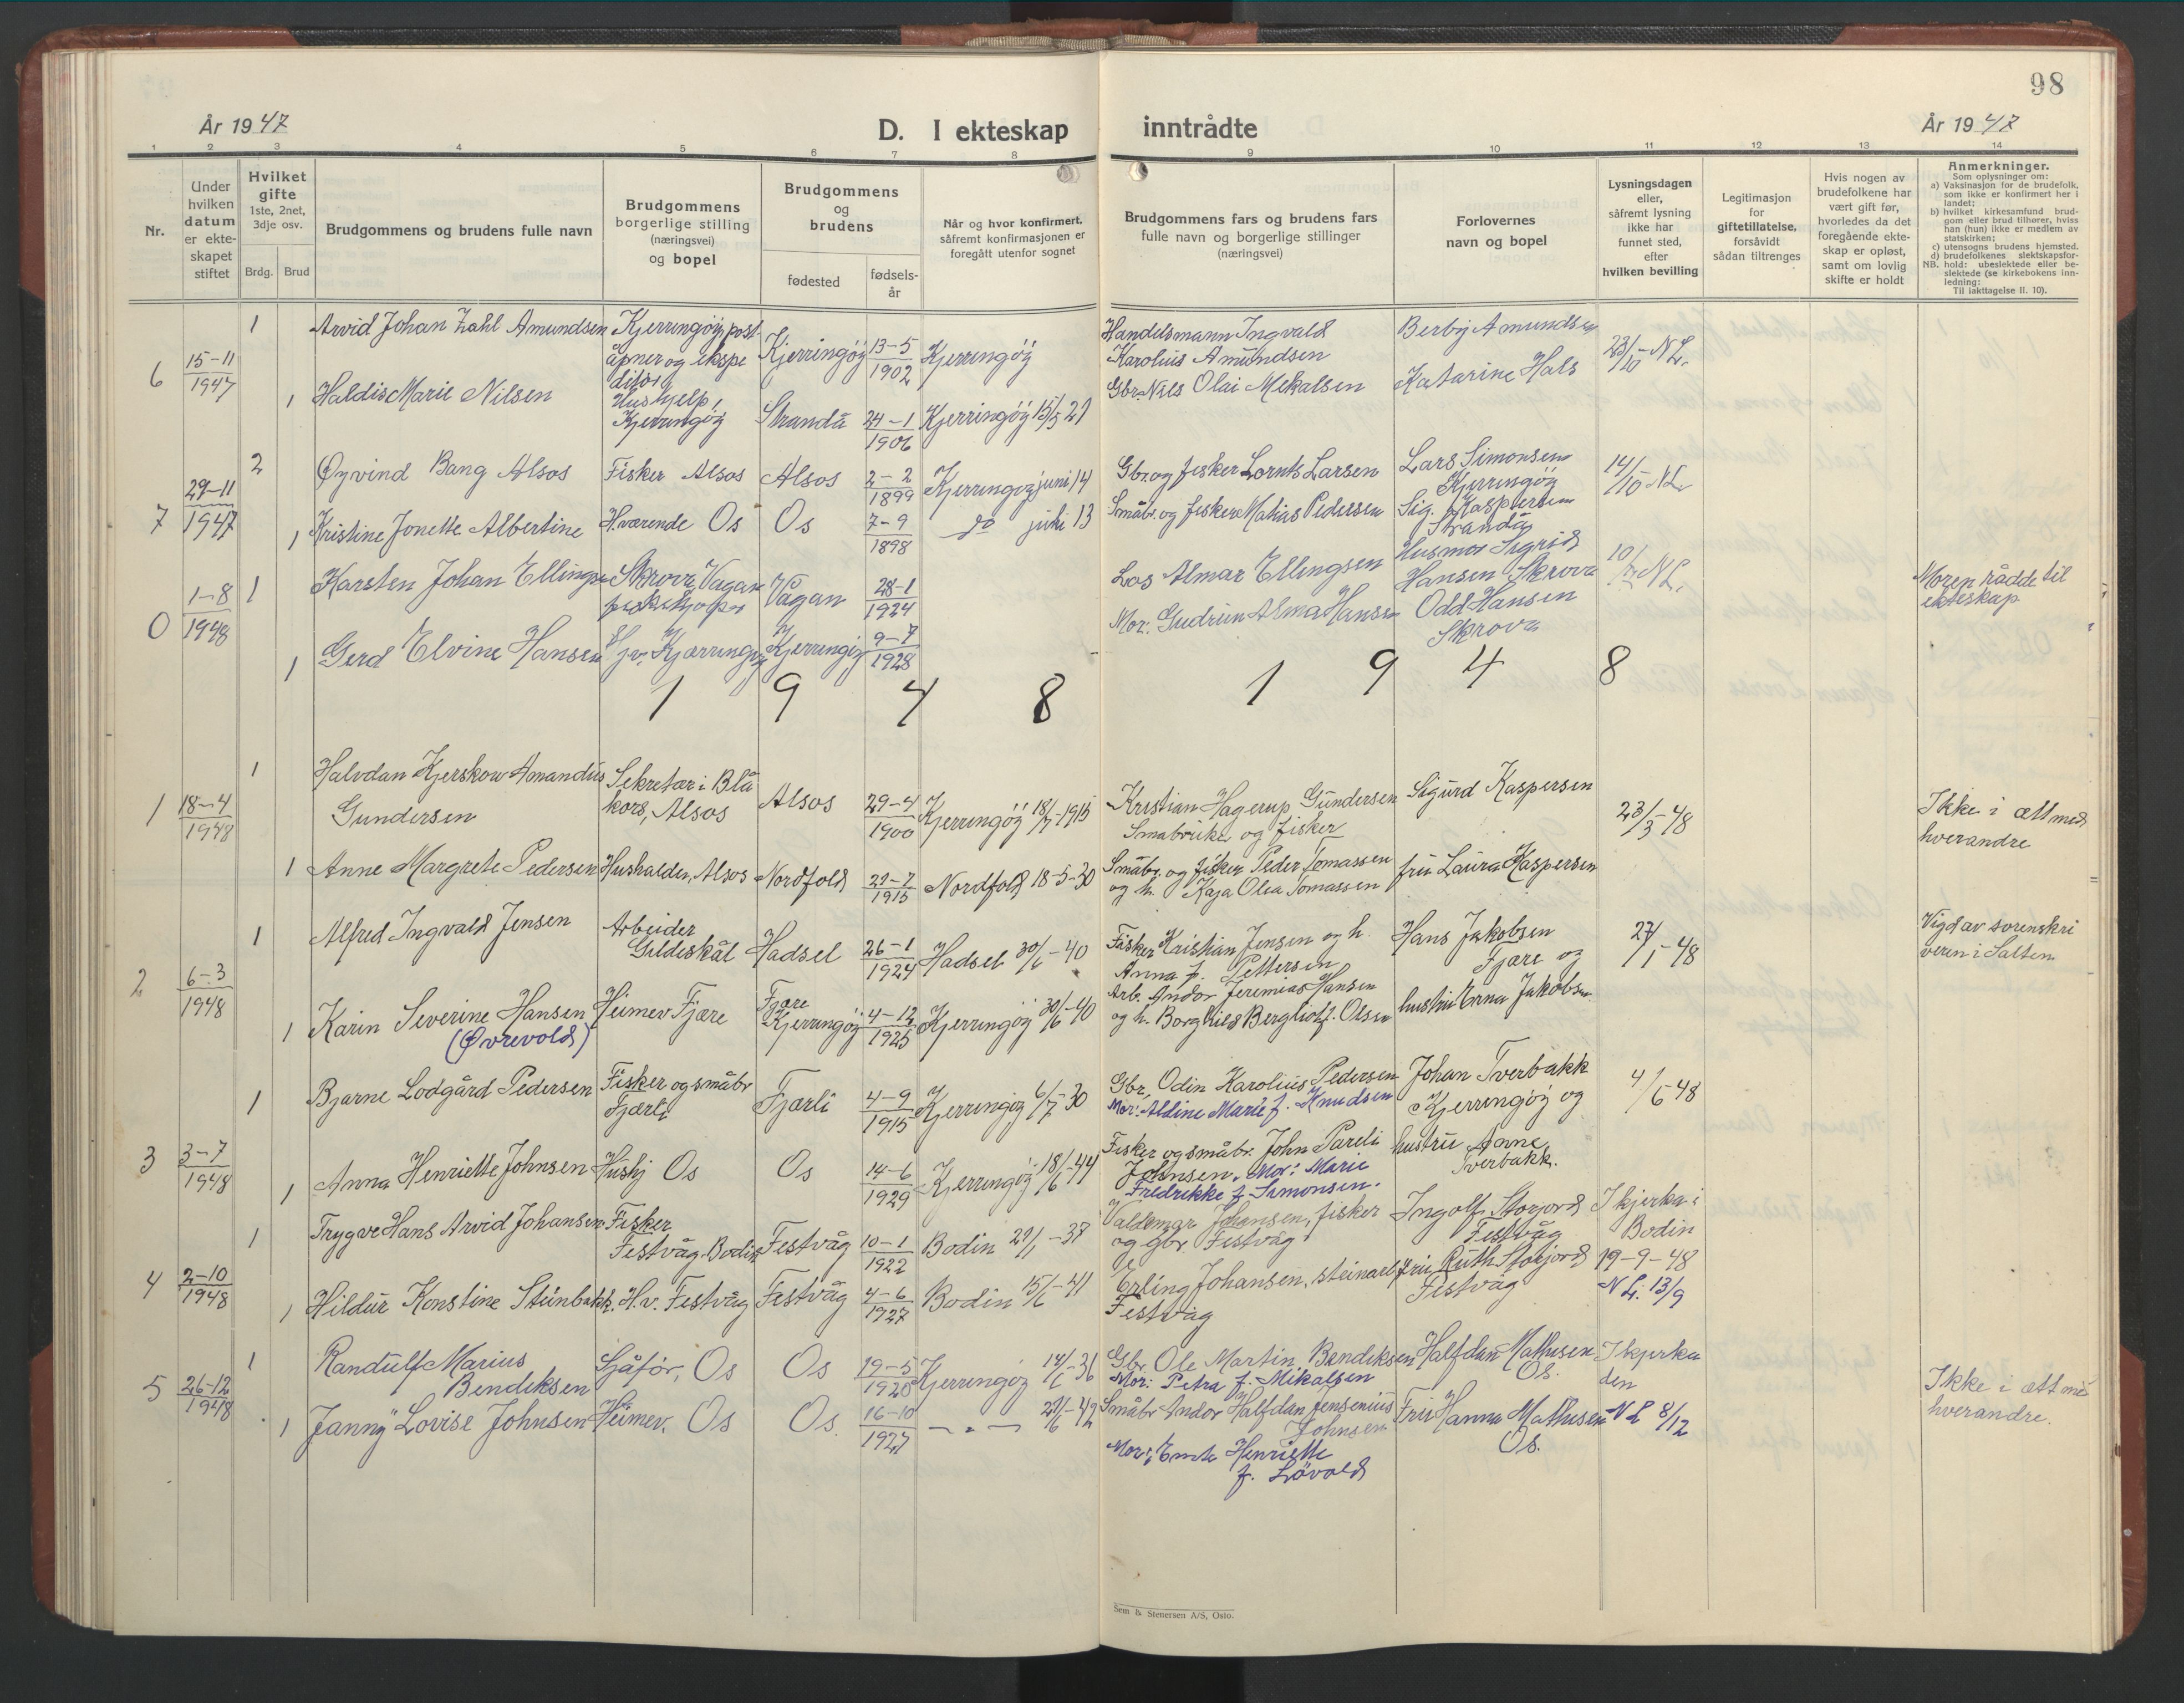 98
År 1947
D. I ekteskap inntrådte
År 1947
1 2 3 4 5 6 7 8 9 10 11 12 13 14
Nr.
Under hvilken datum er ekteskapet stiftet
Hvilket gifte
1ste, 2net, 3dje osv.
Brdg. Brud
Brudgommens og brudens fulle navn
Brudgommens borgerlige stilling (næringsvei) og bopel
Brudgommens og brudens
fødested
fødsels-år
Når og hvor konfirmert, såfremt konfirmasjonen er foregått utenfor sognet
Brudgommens fars og brudens fars fulle navn og borgerlige stillinger (næringsvei)
Forlovernes navn og bopel
Lysningsdagen eller, såfremt lysning ikke har funnet sted, efter hvilken bevilling
Legitimasjon for giftetillatelse, forsåvidt sådan tiltrenges
Hvis nogen av brudefolkene har vært gift før, hvorledes da det foregående ekteskap er opløst, samt om lovlig skifte er holdt
Anmerkninger.
Som oplysninger om:
a) Vaksinasjon for de brudefolk, som ikke er konfirmert her i landet;
b) hvilket kirkesamfund brudgom eller brud tilhører, hviss han (hun) ikke er medlem av statskirken;
c) utensogns brudens hjemsted.
d) brudefolkenes slektskapsforhold: ubeslektede eller beslektede (se kirkebokens innledning:
NB.
Til iakttagelse II. 10).
6 15-11 1947
1 Arvid Johan Zahl Amundsen Kjerringøy, poståpner og ekspeditør Kjerringøy 13-5 1902 Kjerringøy Handelsmann Ingvald Karolius Amundsen Berby Amundsen 23/10 N.L.
1 Haldis Marie Nilsen Hushjelp, Kjerringøy Strandå 24-1 1906 Kjerringøy 15/5 21 Gbr. Nils Olai Mekalsen Katarine Hals
7 29-11 1947
2 Øyvind Bang Alsos Fisker Alsos Alsos 2-2 1899 Kjerringøy juni 14 Gbr. og fisker Lornts Larsen Lars Simonsen Kjerringøy 14/10 N.L.
1 Kristine Jonette Albertine H.værende Os Os 7-9 1898 do juli 13 Småbr. og fisker Matias Pedersen Sig. Kaspersen Strandå
0 1-8 1948
1 Karsten Johan Ellingsen Skrova, Vågan fiskekjøper Vågan 28-1 1924 Los Almar Ellingsen Husmor Sigrid Hansen Skrova 10/7 N.L. Moren rådde til ekteskap
1 Gerd Elvine Hansen Hjv. Kjærringøy Kjerringøy 9-7 1928 Mor: Gudrun Alma Hansen Odd Hansen Skrova
1 9 4 8 1 9 4 8
1 18-4 1948
1 Halvdan Kjerskow Amandus Gundersen Sekretær i Blå kors, Alsos Alsos 29-4 1900 Kjerringøy 18/7-1915 Kristian Hagerup Gundersen Småbruker og fisker Sigurd Kaspersen 23/3-48 Ikke i ætt med hverandre
1 Anne Margrete Pedersen Husholder, Alsos Nordfold 29-7 1915 Nordfold 18-5-30 Småbr. og fisker Peder Tomassen og h. Kaja Olea Tomassen fru Laura Kaspersen
2 6-3 1948
1 Alfred Ingvald Jensen Arbeider Gildeskål Hadsel 26-1 1924 Hadsel 30/6-40 Fisker Kristian Jensen og h. Anna f. Pettersen Hans Jakobsen Fjære og 27/1-48 Vigd av sorenskriveren i Salten
1 Karin Severine Hansen (Øvrevold) Heimev Fjære Fjære Kjerringøy 4-12 1925 Kjerringøy 30/6-40 Arb. Andor Jeremias Hansen og h. Borghild Bergliot f. Olsen hustru Erna Jakobsen
3 3-7 1948
1 Bjarne Lodgård Pedersen Fisker og småbr Fjærli Fjærli 4-9 1915 Kjerringøy 6/7-30 Gbr. Odin Karolius Pedersen Mor: Aldine Marie f. Knudsen Johan Tverbakk Kjerringøy og 4/6-48
1 Anna Henriette Johnsen Hushj Os Os 14-6 1929 Kjerringøy 18/6-44 Fisker og småbr. John Pareli Johnsen. Mor: Marie Fredrikke f. Simonsen. hustru Anne Tverbakk.
4 2-10 1948
1 Trygve Hans Arvid Johansen Fisker Festvåg Bodin Festvåg 10-1 1922 Bodin 29/1-38 Valdemar Johansen, fisker og gbr. Festvåg Ingolf Storjord Festvåg I kjerka i Bodin
1 Hildur Konstine Steinbakk. H.v. Festvåg Festvåg 4-6 1927 Bodin 15/6-41 Erling Johansen, steinarb. Festvåg fru Ruth Storjord Festvåg 19-9-48 N.L. 13/9
5 26-12 1948
1 Randulf Marius Bendiksen Sjåfør, Os Os 19-5 1920 Kjerringøy 14/6-36 Gbr. Ole Martin Bendiksen Mor: Petra f. Mikalsen Halfdan Mathisen Os. I kjerka den Ikke i ætt med hverandre.
1 Janny Lovise Johnsen Heimev. Os Os. 16-10 1927 — " — 21/6-42 Småbr Andor Halfdan Jensenius Johnsen Mor: Henriette f. Løvold Fru Hanna Mathisen Os. N L 8/12
Sem & Stenersen A/S, Oslo.